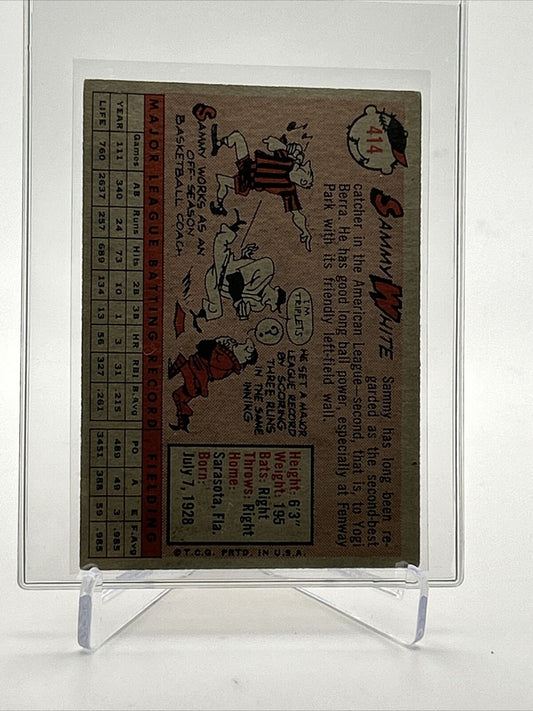 414
SAMMY WHITE
Sammy has long been re-
garded as the second-best
catcher in the American League—second, that is to Yogi
Berra. He has good long ball power, especially at Fenway
Park with its friendly left-field wall.
SAMMY WORKS AS AN
OFF-SEASON
BASKETBALL COACH
I'M
TRIPLETS
?
HE SET A MAJOR
LEAGUE RECORD
BY SCORING
THREE RUNS
IN THE SAME
INNING
Height: 6'3"
Weight: 195
Bats: Right
Throws: Right
Home:
Sarasota, Fla.
Born:
July 7, 1928
MAJOR LEAGUE BATTING RECORD FIELDING
Games AB Runs Hits 2B 3B HR RBI B.Avg PO A E F.Avg
YEAR 111 340 24 73 10 1 3 31 .215 489 49 3 .985
LIFE 760 2637 257 689 134 13 56 327 .261 3451 388 59 .985
© T.C.G. PRTD. IN U.S.A.